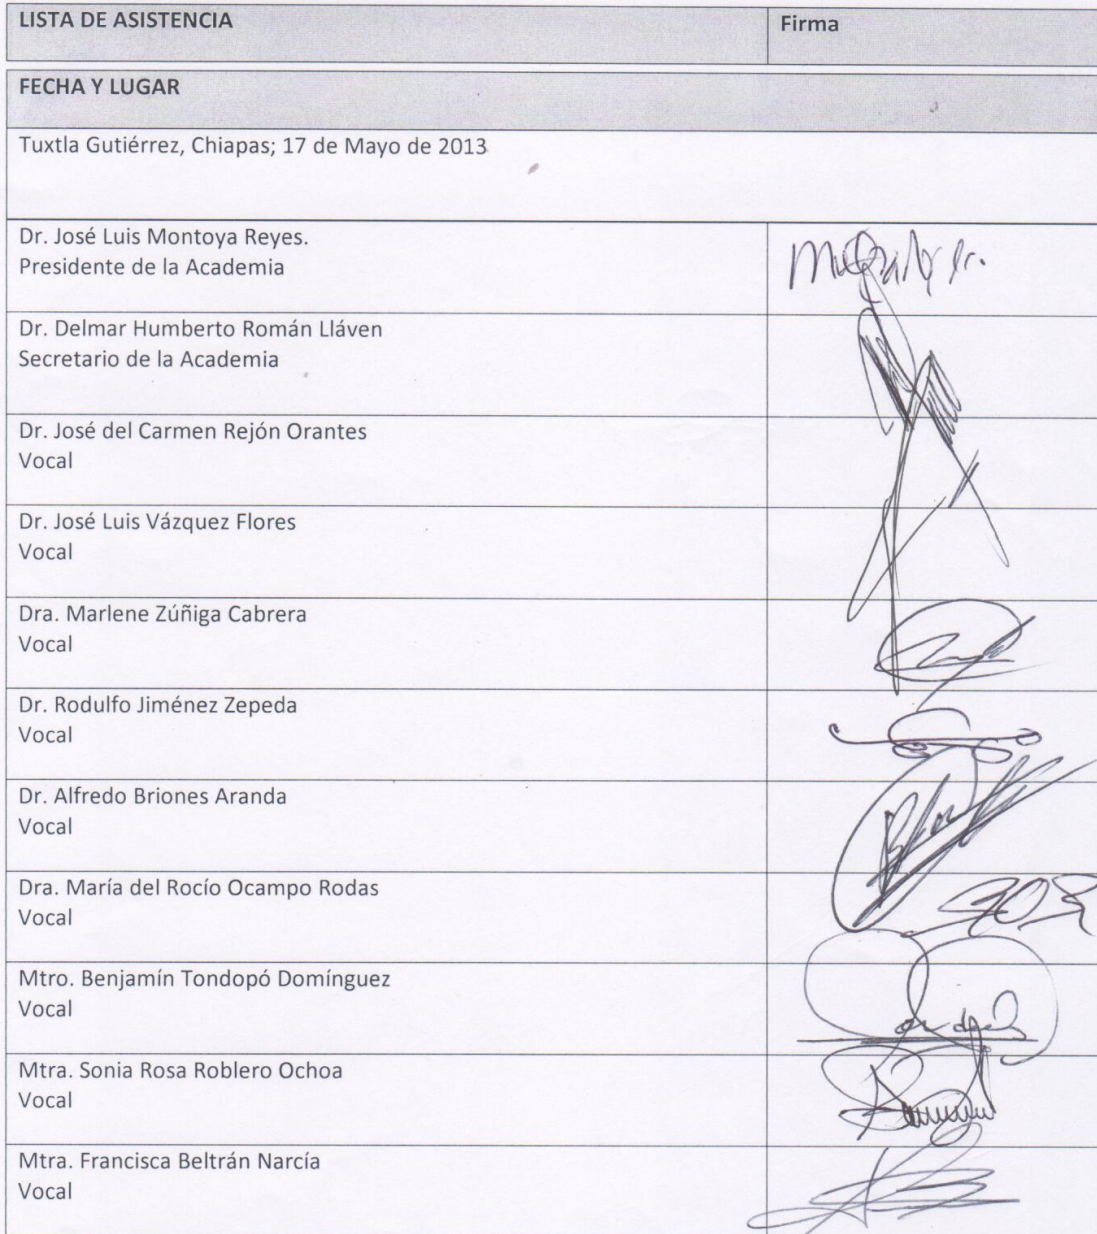 LISTA DE ASISTENCIA Firma
FECHA Y LUGAR
Tuxtla Gutiérrez, Chiapas; 17 de Mayo de 2013
Dr. José Luis Montoya Reyes.
Presidente de la Academia
Dr. Delmar Humberto Román Lláven
Secretario de la Academia
Dr. José del Carmen Rejón Orantes
Vocal
Dr. José Luis Vázquez Flores
Vocal
Dra. Marlene Zúñiga Cabrera
Vocal
Dr. Rodulfo Jiménez Zepeda
Vocal
Dr. Alfredo Briones Aranda
Vocal
Dra. María del Rocío Ocampo Rodas
Vocal
Mtro. Benjamín Tondopó Domínguez
Vocal
Mtra. Sonia Rosa Roblero Ochoa
Vocal
Mtra. Francisca Beltrán Narcía
Vocal